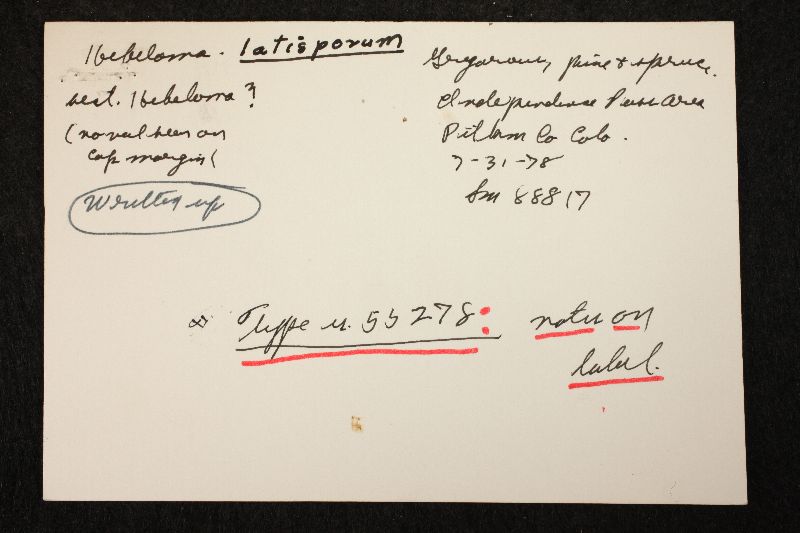 Hebeloma. latisporum
sect. Hebeloma?
(no veil seen on
cap margin(
Written up
Gregarious, pine & spruce.
Independence Pass Area
Pitkin Co Colo.
7-31-78
Sm 88817
Type u. 55278: note on
label.